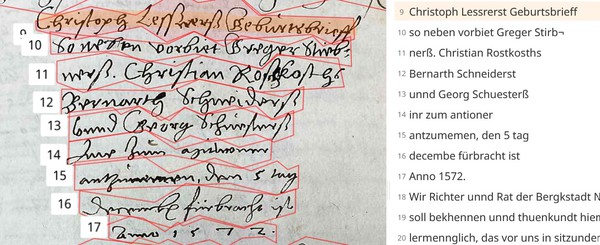 Christoph Lessrerst Geburtsbrieff
10 so neben vorbiet Greger Stirb¬
11 nerß. Christian Rostkosths
12 Bernarth Schneiderst
13 unnd Georg Schuesterß
14 inr zum antioner
15 antzumemen, den 5 tag
16 decembe fürbracht ist
17 Anno 1572.
9 Christoph Lessrerst Geburtsbrieff
10 so neben vorbiet Greger Stirb¬
11 nerß. Christian Rostkosths
12 Bernarth Schneiderst
13 unnd Georg Schuesterß
14 inr zum antioner
15 antzumemen, den 5 tag
16 decembe fürbracht ist
17 Anno 1572.
18 Wir Richter unnd Rat der Bergkstadt N
19 soll bekhennen unnd thuenkundt hiem
20 lermenngklich, das vor uns in sitzunder